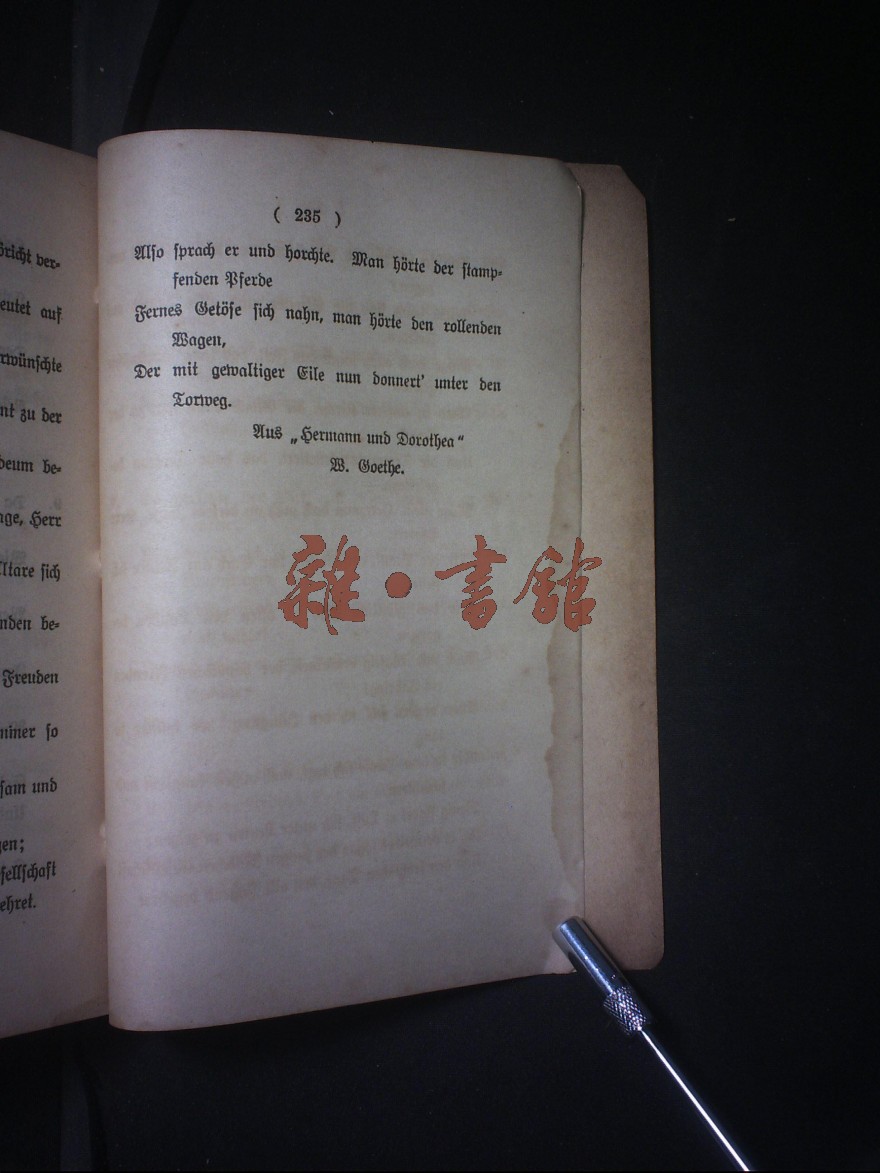 öricht ver=
eutet auf
rwünschte
nt zu der
deum be=
age, Herr
ltare sich
nden be=
Freuden
miner so
sam und
en;
sellschaft
ehret.
( 235 )
Also sprach er und horchte. Man hörte der stamp=
fenden Pferde
Fernes Getöse sich nahn, man hörte den rollenden
Wagen,
Der mit gewaltiger Eile nun donnert' unter den
Torweg.
Aus „Hermann und Dorothea“
W. Goethe.
雜·書館